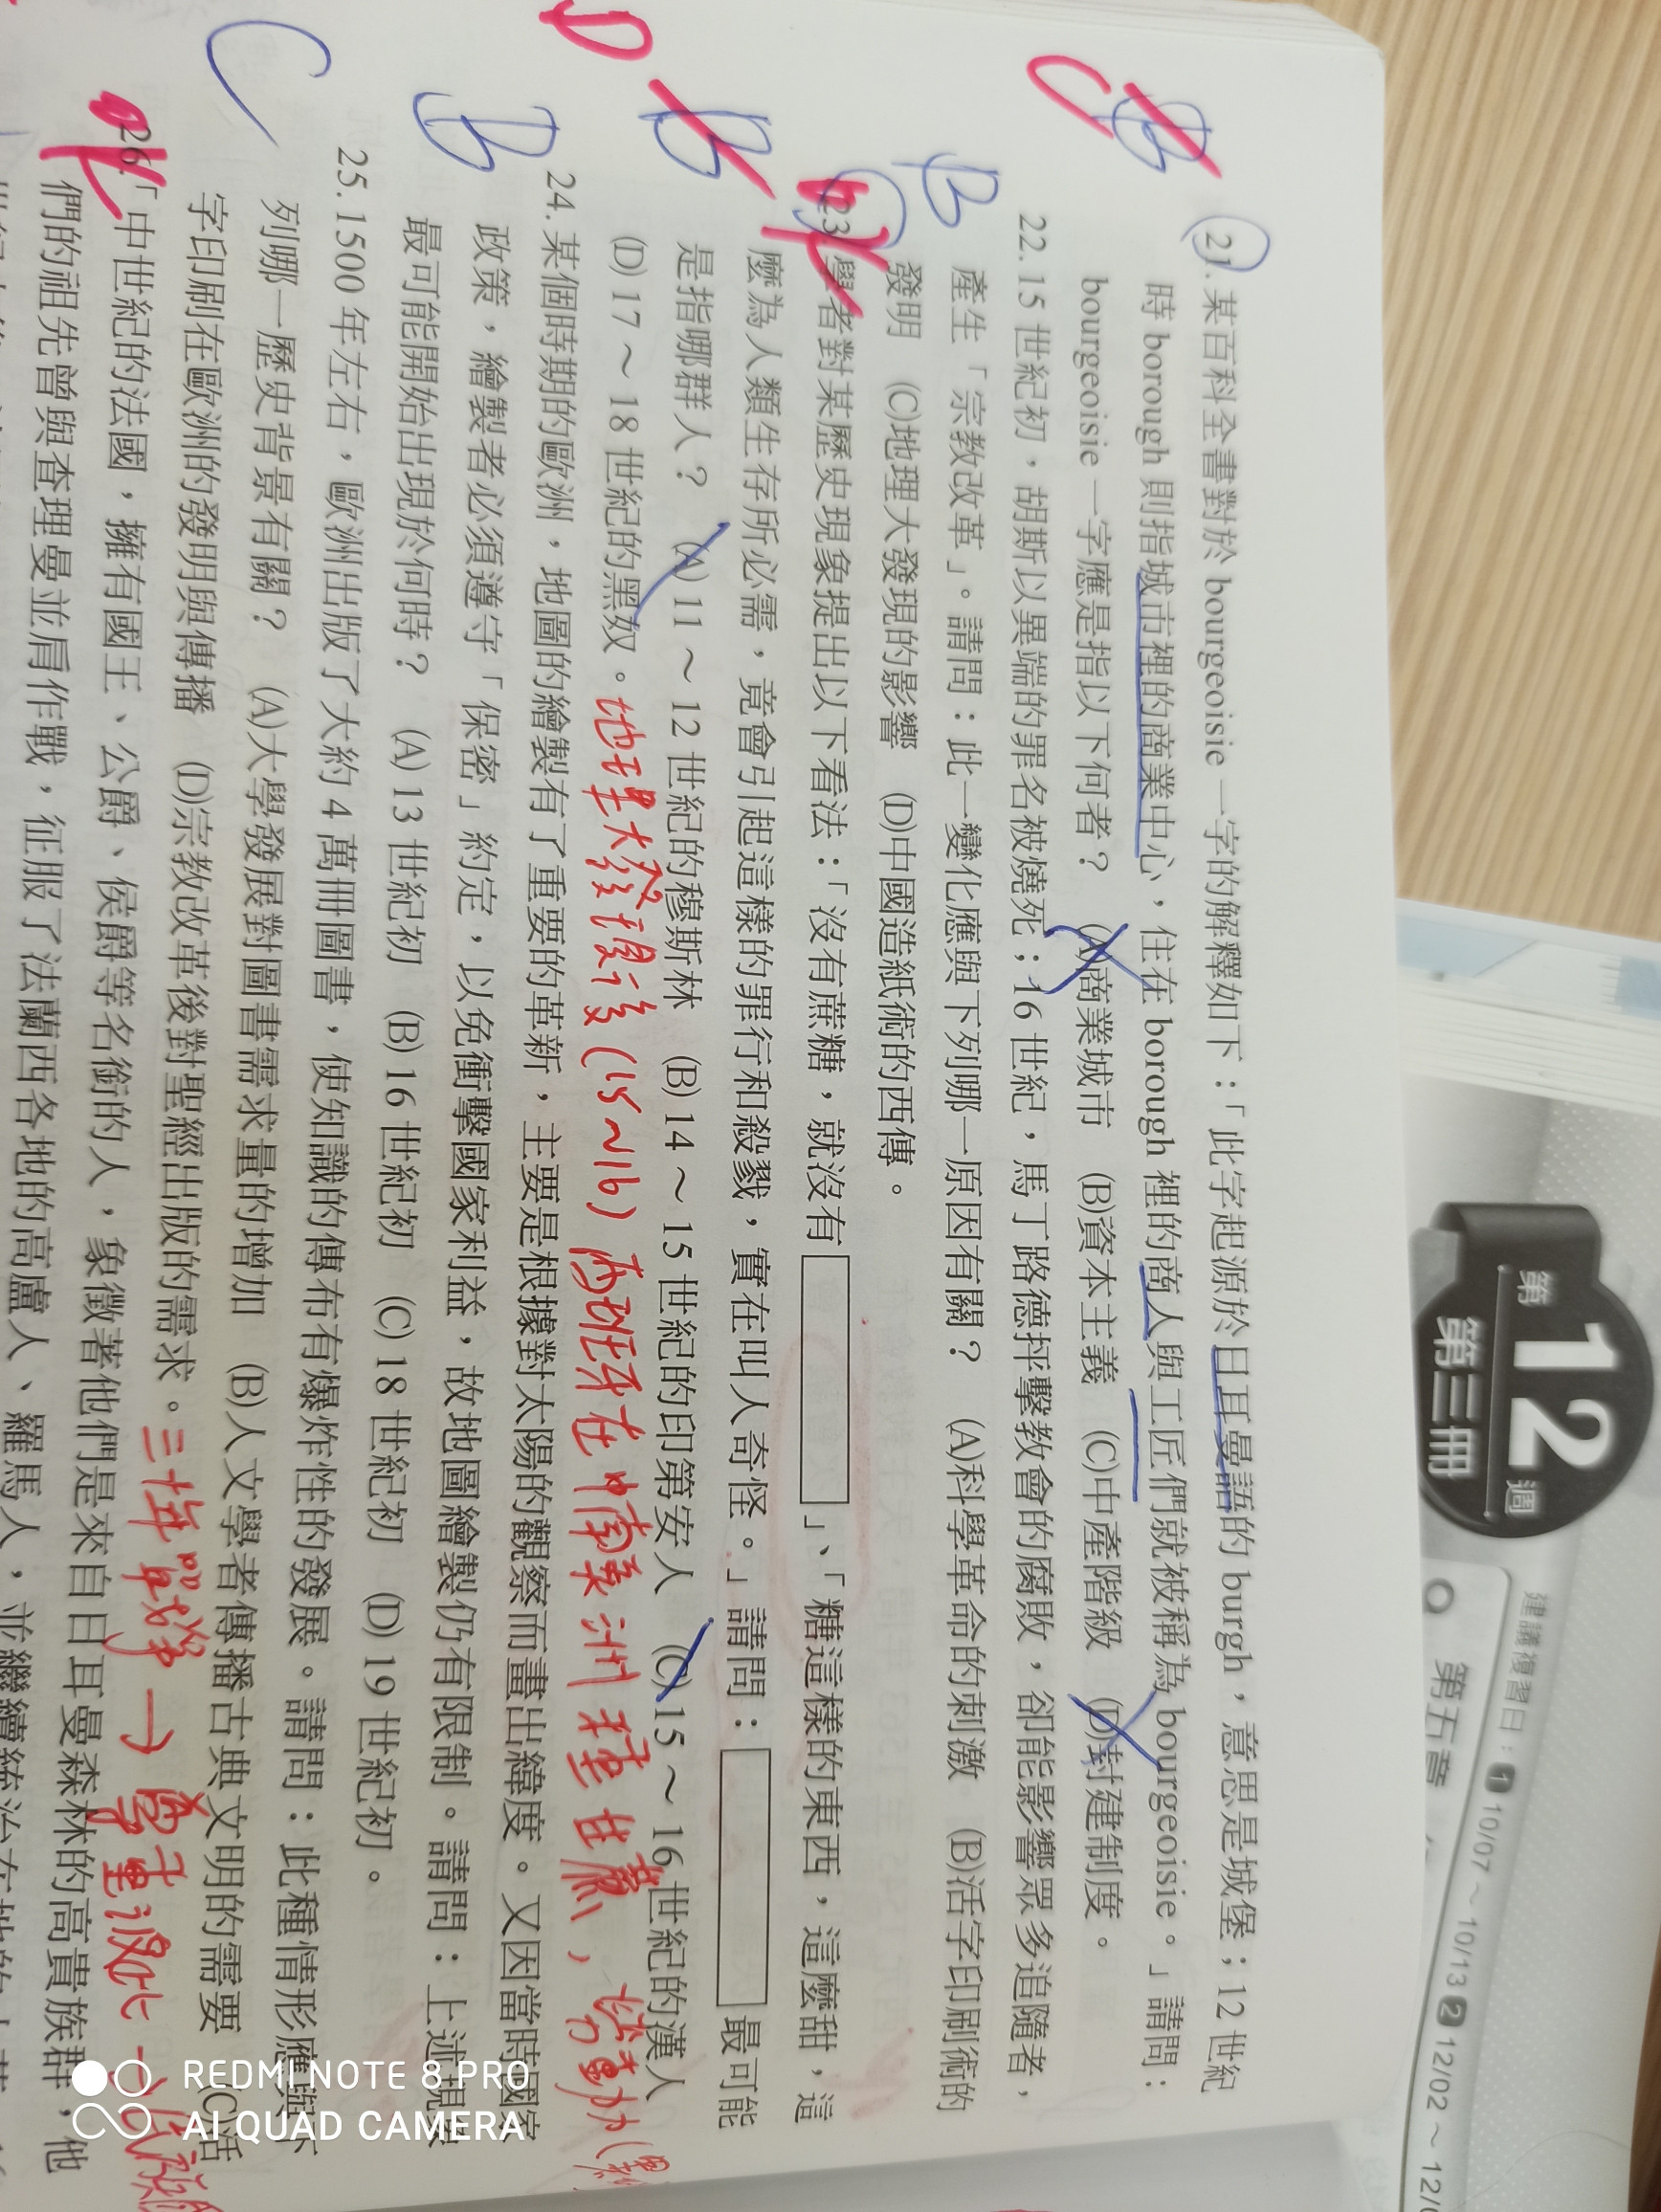 第12週
第三冊
建議複習日：❶10/07～10/13❷12/02～12/
第五章
C
B
21.某百科全書對於 bourgeoisie 一字的解釋如下：「此字起源於日耳曼語的 burgh，意思是城堡；12 世紀
時 borough 則指城市裡的商業中心，住在 borough 裡的商人與工匠們就被稱為 bourgeoisie。」請問：
bourgeoisie 一字應是指以下何者？ (A)商業城市 (B)資本主義 (C)中產階級 (D)封建制度。
B
22.15 世紀初，胡斯以異端的罪名被燒死；16 世紀，馬丁路德抨擊教會的腐敗，卻能影響眾多追隨者，
產生「宗教改革」。請問：此一變化應與下列哪一原因有關？ (A)科學革命的刺激 (B)活字印刷術的
發明 (C)地理大發現的影響 (D)中國造紙術的西傳。
D
B
23.學者對某歷史現象提出以下看法：「沒有蔗糖，就沒有」、「糖這樣的東西，這麼甜，這
麼為人類生存所必需，竟會引起這樣的罪行和殺戮，實在叫人奇怪。」請問：最可能
是指哪群人？ (A)11～12 世紀的穆斯林 (B)14～15 世紀的印第安人 (C)15～16 世紀的漢人
(D)17～18 世紀的黑奴。
地理大發現後(15~16)西班牙在中南美洲種甘蔗，勞動(黑
B
24.某個時期的歐洲，地圖的繪製有了重要的革新，主要是根據對太陽的觀察而畫出緯度。又因當時國家
政策，繪製者必須遵守「保密」約定，以免衝擊國家利益，故地圖繪製仍有限制。請問：上述現象
最可能開始出現於何時？ (A)13 世紀初 (B)16 世紀初 (C)18 世紀初 (D)19 世紀初。
C
25.1500 年左右，歐洲出版了大約 4 萬冊圖書，使知識的傳布有爆炸性的發展。請問：此種情形應與下
列哪一歷史背景有關？ (A)大學發展對圖書需求量的增加 (B)人文學者傳播古典文明的需要 (C)活
字印刷在歐洲的發明與傳播 (D)宗教改革後對聖經出版的需求。
26.「中世紀的法國，擁有國王、公爵、侯爵等名銜的人，象徵著他們是來自日耳曼森林的高貴族群，他
們的祖先曾與查理曼並肩作戰，征服了法蘭西各地的高盧人、羅馬人，並繼續統治在地的
REDMI NOTE 8 PRO
AI QUAD CAMERA